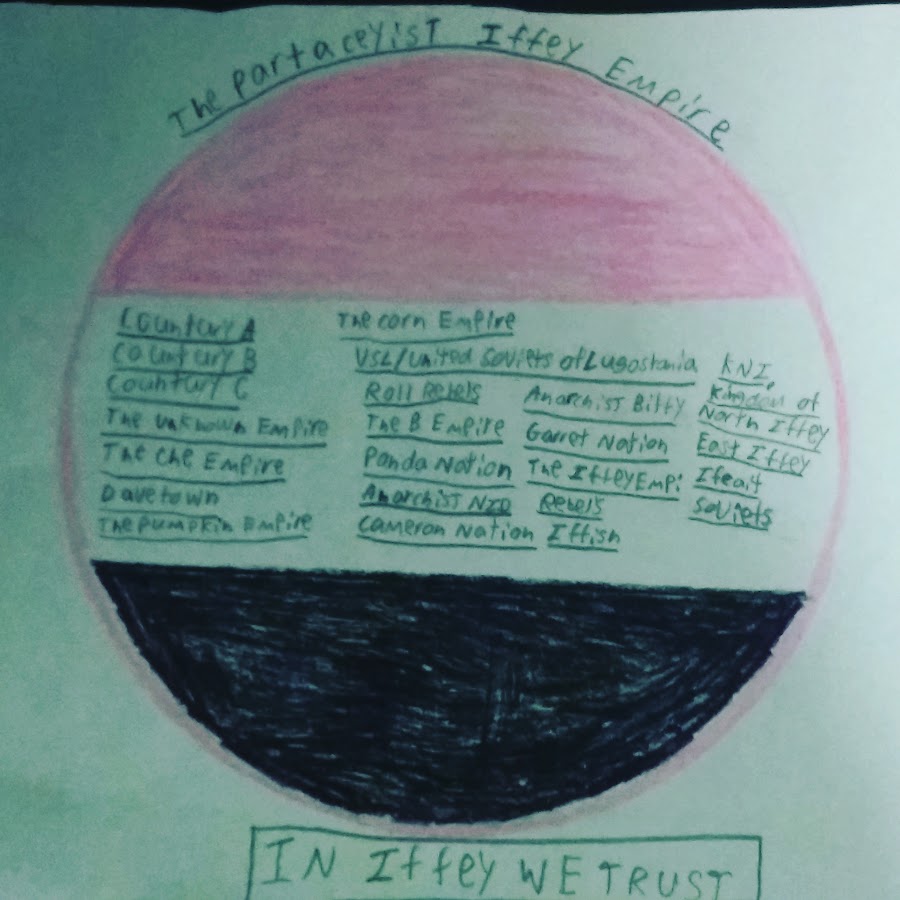 The partaceyist Iffey Empire
Countury A
Countury B
Countury C
The unknown Empire
The Che Empire
Davetown
The Pumpkin Empire
The corn Empire
USL/United Soviets of Lugostania
Roll Rebels
The B Empire
Panda Nation
Anarchist NID
Cameron Nation
Anarchist Bitty
Garret Nation
The IffeyEmpi
Rebels
Iffish
KNI,
Kingdom of
North Iffey
East Iffey
Ifeait
Soviets
IN Iffey WE TRUST